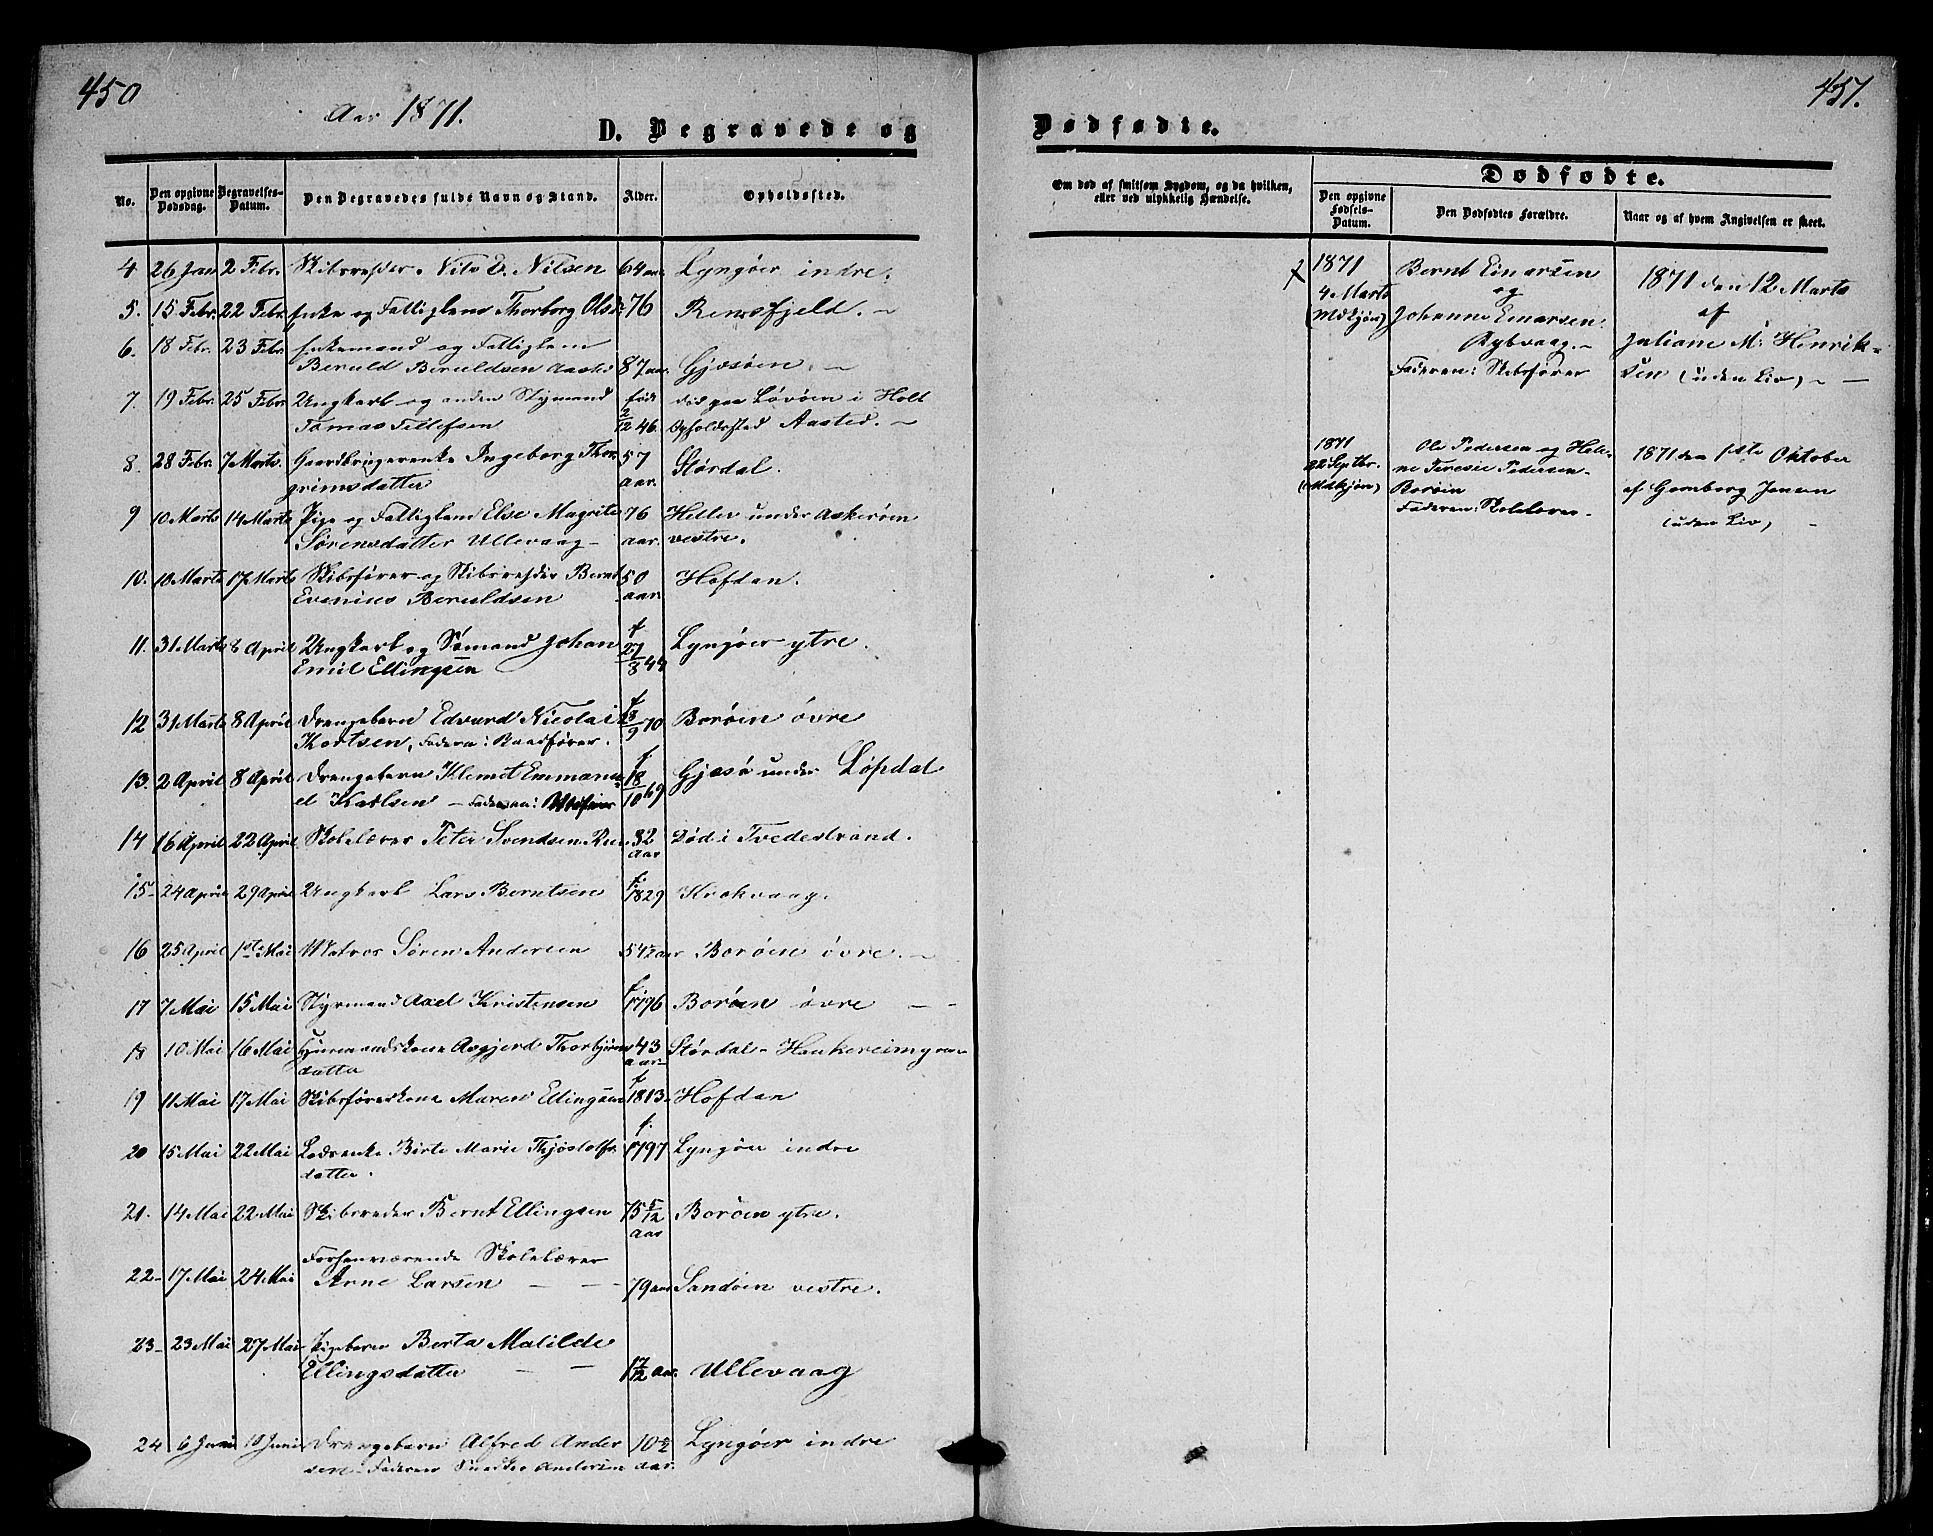 450
Aar 1871.
D. Begravede og
No.
Den opgivne Dødsdag.
Begravelses-Datum.
Den Begravedes fulde Navn og Stand.
Alder.
Opholdssted.
4 26 Jan 2 Febr. Skibsreder Nils E. Nilsen 64 aar Lyngøer indre.
5. 15 Febr. 22 Febr. Enke og Fattiglem Thorborg Olsd. 76 Remsfjeld. -
6. 18 Febr. 23 Febr. Enkemand og Fattiglem
Beruld Beruldsen Aasted 87 aar. Gjæsøen. -
7. 19 Febr. 25 Febr. Ungkarl og anden Stymand født død paa Løvøen i Holt
Tomas Tellefsen 2/12 46. Opholdssted Aasted. -
8. 28 Febr. 7 Marts. Gaardbrugerenke Ingeborg Thor- 57 Størdal.
grimsdatter aar.
9 10 Marts 14 Marts Pige og Fattiglem Else Magrite 76 Heller under Askerøen
Sørensdatter Ullevaag - aar. vestre.
10. 10 Marts 17 Marts Skibsfører og Skibsreder Bernt 50 Hofdan.
Evenius Beruldsen aar
11. 31 Marts 8 April Ungkarl og Sømand Johan f Lyngøer ytre.
Emil Ellingsen 27/3 49
12 31 Marts 8 April Drengebarn Edvard Nicolai f 13/9 70 Borøen övre
Kortsen, Faderen: Baadfører.
13. 2 April 8 April Drengebarn Klemet Emmanu- f 18 Gjæsø under Löpdal
el Karlsen - Faderen: 10 69
14 16 April 22 April Skolelærer Peter Svendsen 32 aar Död i Tvedestrand.
15- 24 April 29 April Ungkarl Lars Berntsen f. 1829 Krokvaag.
16 25 April 1ste Mai Matros Søren Andersen 54 1/2 aar Borøen övre. -
17 7 Mai 15 Mai Styrmand Axel Kristensen f 1796 Borøen övre - -
18 10 Mai 16 Mai Huusmandskone Asgjerd Thorbjörns 43 Størdal -
datter aar
19 11 Mai 17 Mai Skibsførerkone Maren Ellingsen f 1813. Hofdan
20 15 Mai 22 Mai Lodsenke Birte Marie Thjøstolfs f. 1797 Lyngøer indre
datter.
21. 14 Mai 22 Mai Skibsreder Bernt Ellingsen 75 5/12 aar Borøen ytre.
Forhenværende Skolelærer
22- 17 Mai 24 Mai Arne Larsen - - 79 aar Sandøen vestre.
23- 23 Mai 27 Mai Pigebarn Berta Matilde
Ellingsdatter - - 1 7/12 aar. Ullevaag
24 6 Juni 10 Juni Drengebarn Alfred Ander 10 1/2 Lyngøer indre
sen - Faderen Snedker Andersen aar.
451.
Dødfødte.
Om død af smitsom Sygdom, og da hvilken,
eller ved ulykkelig Hændelse.
Dødfødte.
Den opgivne Fødsels-Datum.
Den Dødfødtes Forældre.
Naar og af hvem Angivelsen er skeet.
1871
4 Marts
(Mdkjøn)
Bernt Einarsen
og
Johanne Einarsen.
Dybvaag. -
Faderen: Skibsfører
1871 den 12 Marts
af
Juliane M. Henrik-
sen (uden Liv) - -
1871
22 Septbr.
(Mdkjøn)
Ole Pedersen og Hele-
ne Teresie Pedersen
Borøen
Faderen: Skolelærer -
1871 den 1ste Oktober
af Gomborg Jensen
(uden Liv) -